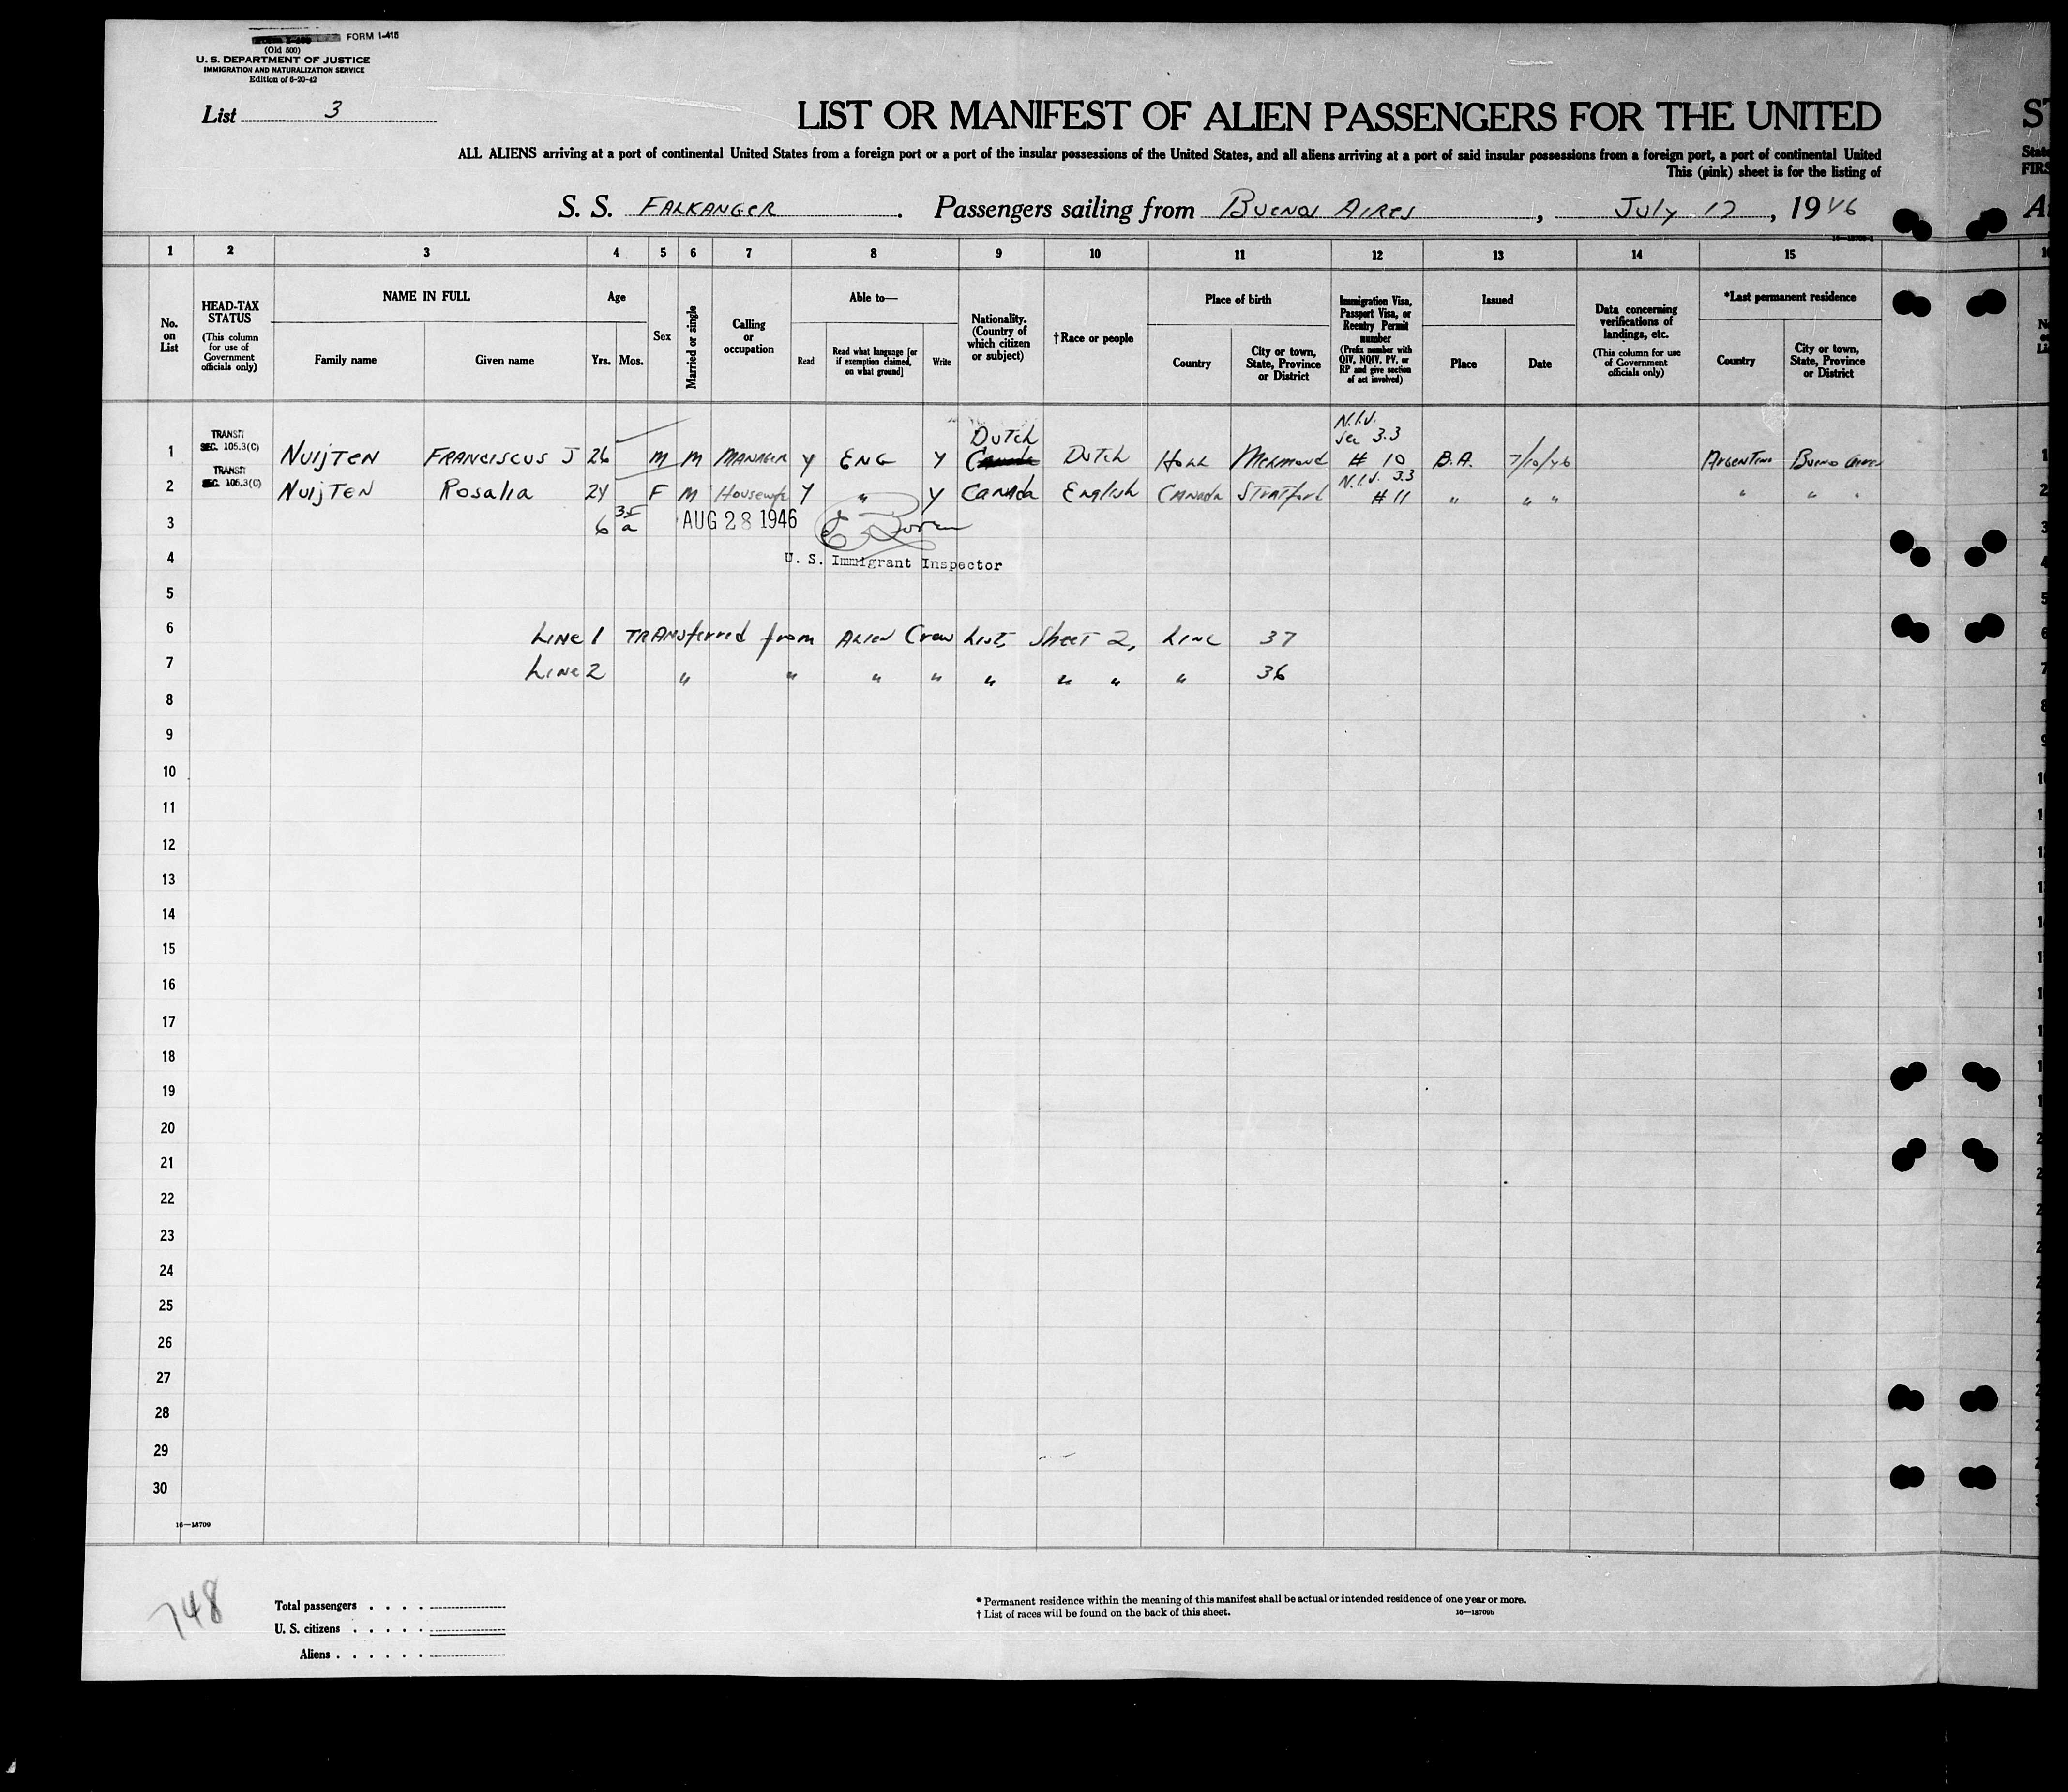 FORM I-415
(Old 500)
U. S. DEPARTMENT OF JUSTICE
IMMIGRATION AND NATURALIZATION SERVICE
Edition of 6-20-42
List 3
LIST OR MANIFEST OF ALIEN PASSENGERS FOR THE UNITED ST
ALL ALIENS arriving at a port of continental United States from a foreign port or a port of the insular possessions of the United States, and all aliens arriving at a port of said insular possessions from a foreign port, a port of continental United State
This (pink) sheet is for the listing of FIRS
S. S. FALKANGER . Passengers sailing from BUENOS AIRES , July 17 , 1946
1 2 3 4 5 6 7 8 9 10 11 12 13 14 15
No. on List
HEAD-TAX STATUS
(This column for use of Government officials only)
NAME IN FULL
Family name Given name
Age
Yrs. Mos.
Sex
Married or single
Calling or occupation
Able to—
Read
Read what language [or if exemption claimed, on what ground]
Write
Nationality. (Country of which citizen or subject)
† Race or people
Place of birth
Country
City or town, State, Province or District
Immigration Visa, Passport Visa, or Reentry Permit number
(Prefix number with QIV, NQIV, PV, or RP and give section of act involved)
Issued
Place Date
Data concerning verifications of landings, etc.
(This column for use of Government officials only)
*Last permanent residence
Country
City or town, State, Province or District
TRANSIT SEC. 105.3(C)
1 NUIJTEN FRANCISCUS J 26 M M MANAGER Y ENG Y DUTCH DUTCH HOLL N.I.V. Sec 3.3 # 10 B.A. 7/10/46 ARGENTINA BUENO AIRES
TRANSIT SEC. 105.3(C)
2 NUIJTEN Rosalia 24 F M Housewife Y " Y CANADA English CANADA STRATford N.I.V. 3.3 #11 " " " " " "
3 6 a 35 AUG 28 1946
4 U. S. Immigrant Inspector
5
6 LINE 1 TRANSferred from ALIEN Crew LIST, Sheet 2, LINE 37
7 LINE 2 " " " " " " " " 36
8
9
10
11
12
13
14
15
16
17
18
19
20
21
22
23
24
25
26
27
28
29
30
16—18709
748
Total passengers . . . .
U. S. citizens . . . . .
Aliens . . . . . .
* Permanent residence within the meaning of this manifest shall be actual or intended residence of one year or more.
† List of races will be found on the back of this sheet. 16—18709b